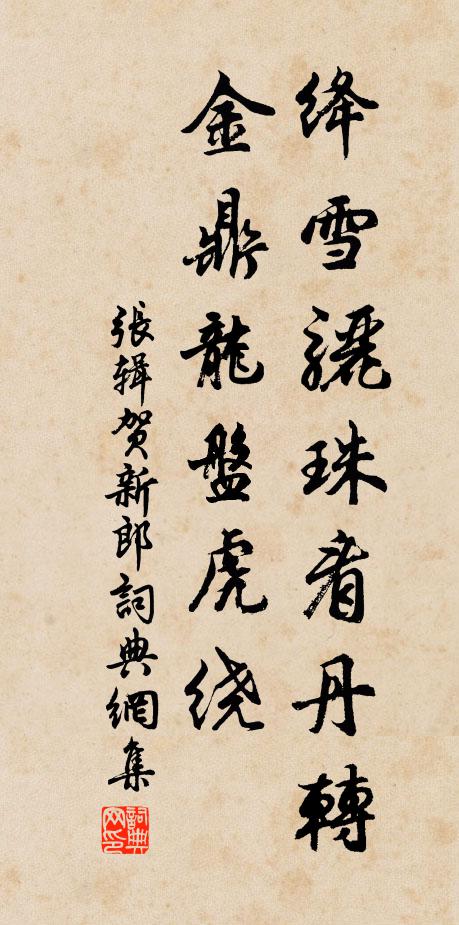 绛雪驪珠看丹轉
金鼎龍盤虎绕
張辑贺新郎詞典網集
詞典网印